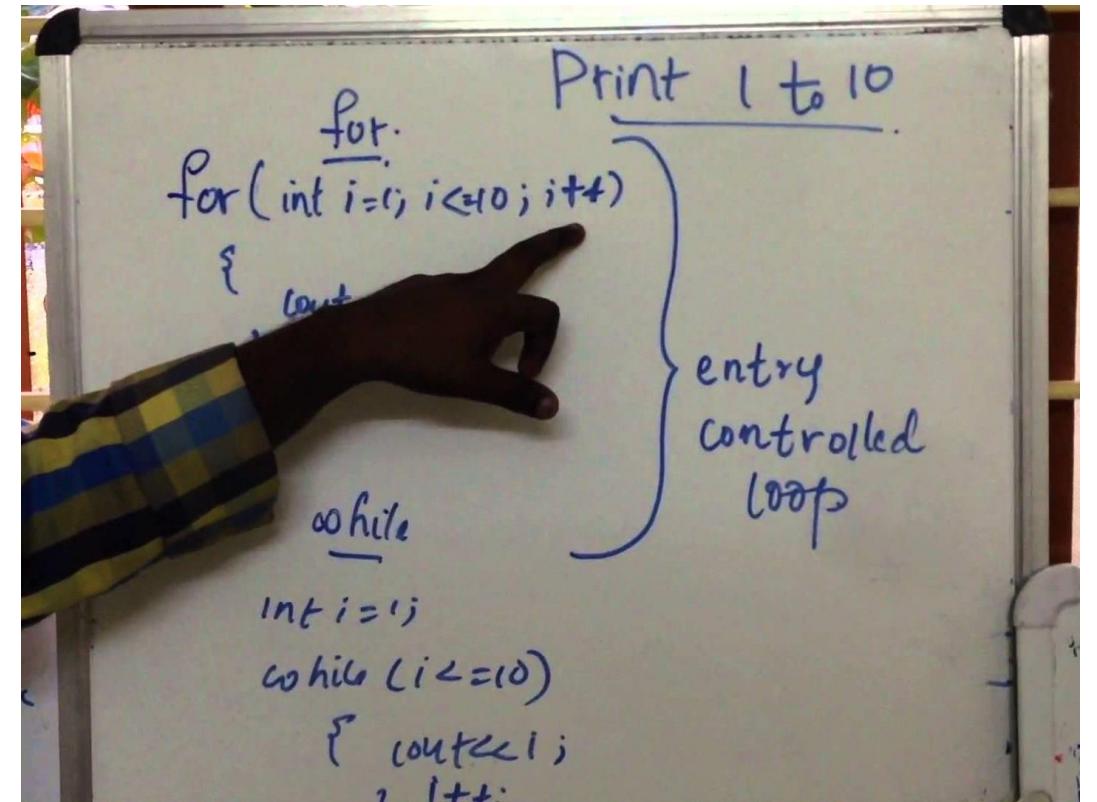 Print 1 to 10
for.
for( int i=1; i<=10; i++)
{
cout
entry
controlled
loop
while
int i=1;
while (i<=10)
{ cout<<i;
i++;